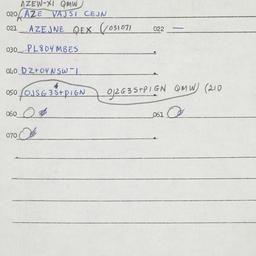 AZEW-XI QMW
020 AZE VAJSI CEJN
021 AZEJNE QEX (/031071 022 —
030 PL804MBES
040 DZ+04NSW-1
050 OJSG3S+PIGN OJ2G3S+PIGN QMW) (210
060 061
070